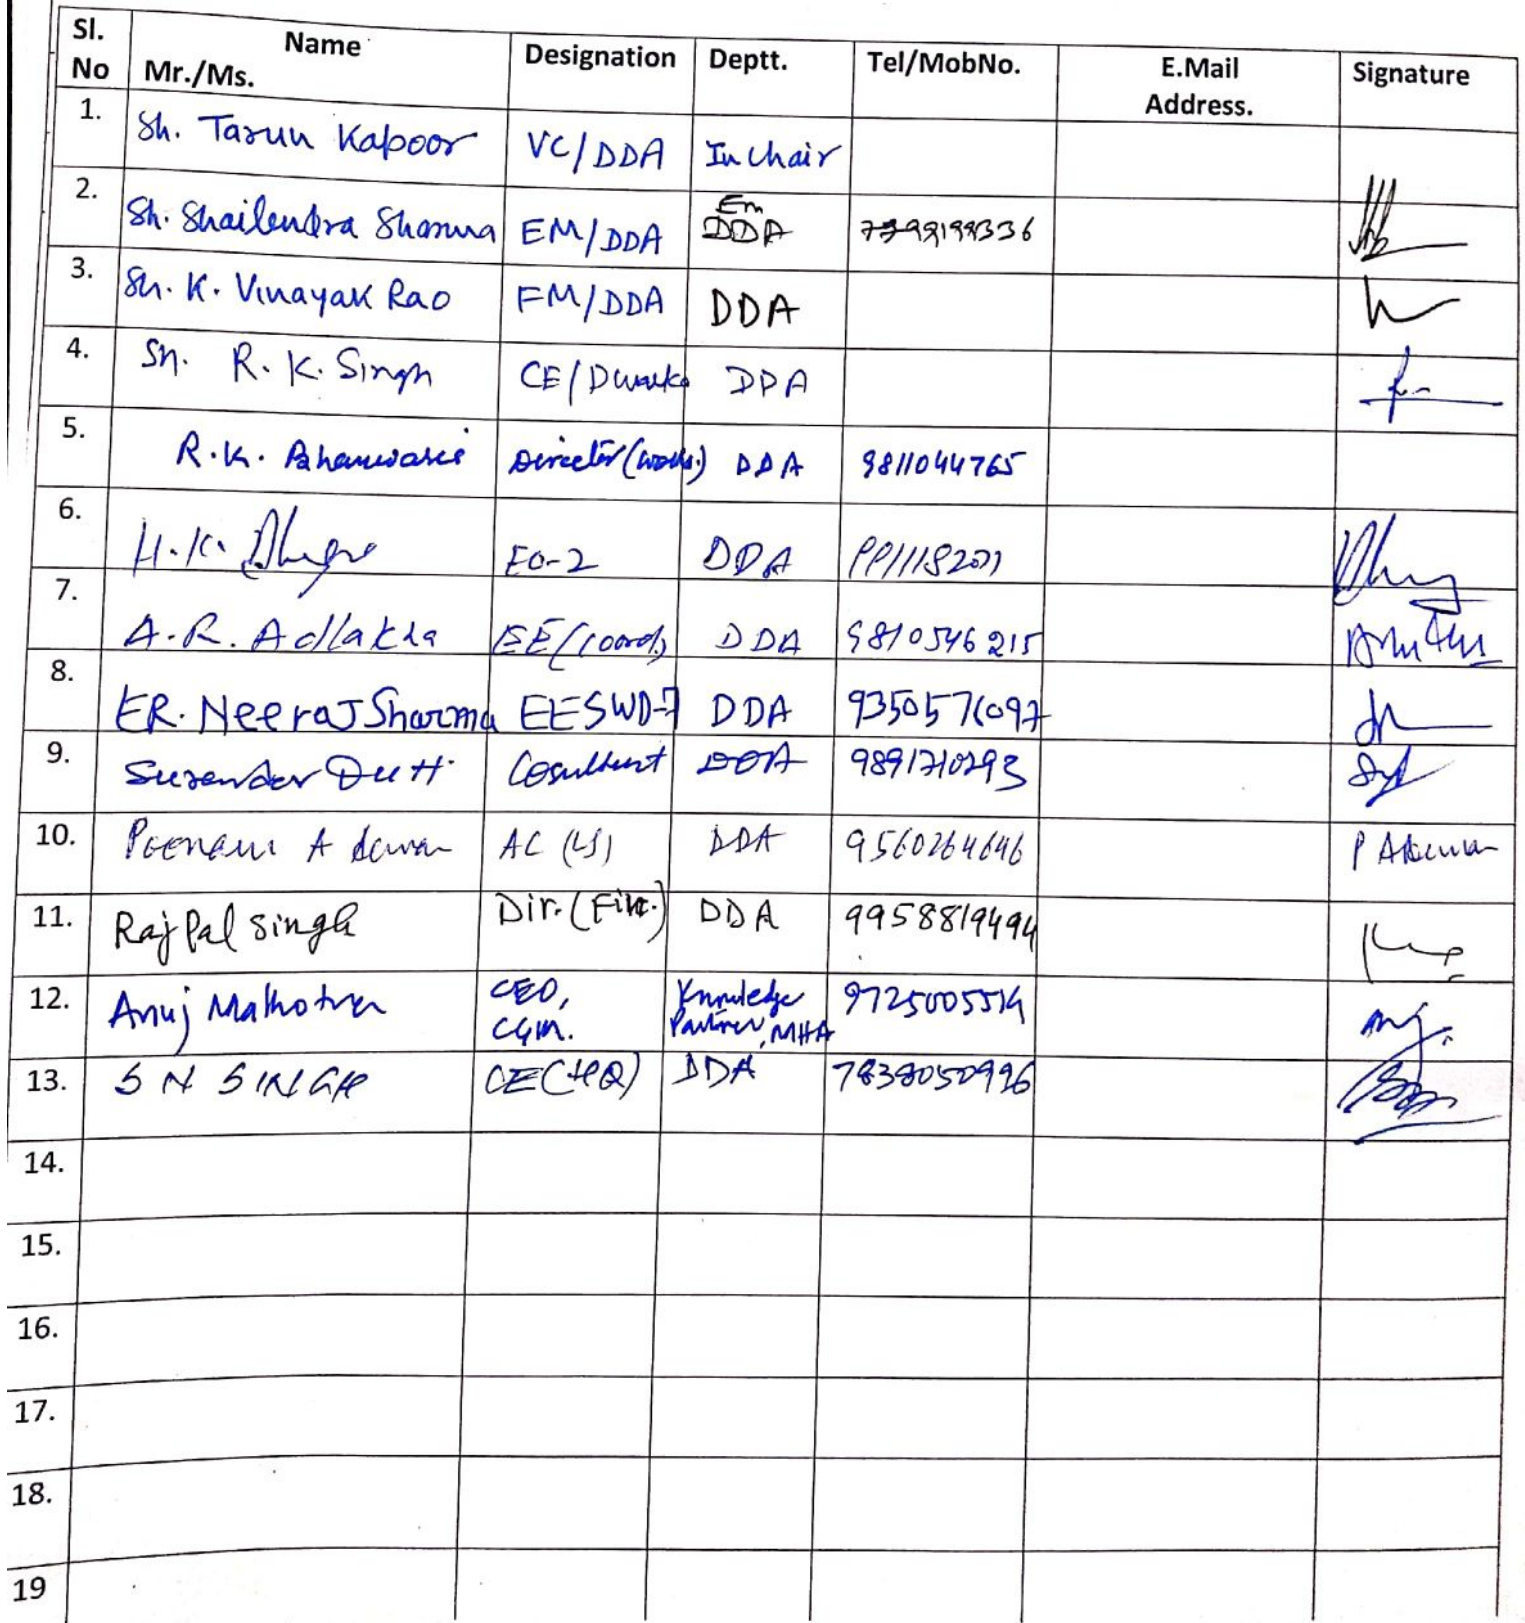 Sl. No Name Mr./Ms. Designation Deptt. Tel/MobNo. E.Mail Address. Signature
1. Sh. Tarun Kapoor VC/DDA In Chair
2. Sh. Shailendra Sharma EM/DDA Em DDA
3. Sh. K. Vinayak Rao FM/DDA DDA
4. Sh. R. K. Singh CE/Dwarka DDA
5. R.K. Director (works.) DDA 9811044765
6. H.K. EO-2 DDA
7. A.R. Adlakha EE/(coord) DDA 9810546215
8. ER. Neeraj Sharma EESWD-7 DDA 9350576097
9. Surender Dutt Cosultent DDA 9891710293
10. Poonam A Dewan AC (LS) DDA 9560264646 P ADewan
11. Raj Pal Singh Dir. (Fin.) DDA 9958819494
12. Anuj Malhotra CEO, CGM. Knowledge Partner, MHA
13. S N SINGH CE(HQ) DDA 7838050996
14.
15.
16.
17.
18.
19